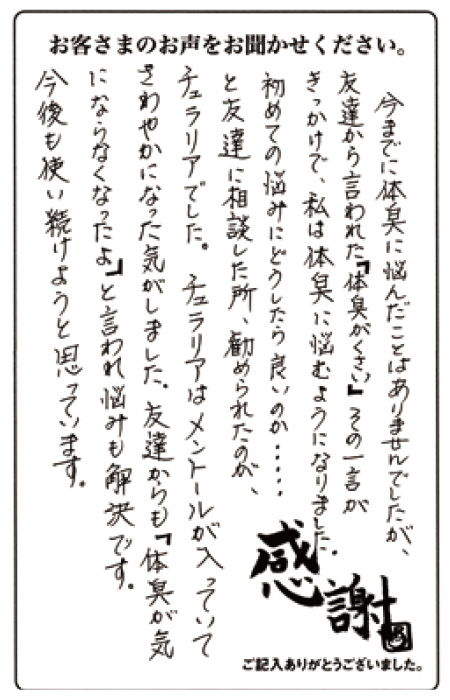 お客さまのお声をお聞かせください。
今までに体臭に悩んだことはありませんでしたが、
友達から言われた「体臭がくさい」その一言が
きっかけで、私は体臭に悩むようになりました。
初めての悩みにどうしたら良いのか……
と友達に相談した所、勧められたのが、
チュラリアでした。チュラリアはメントールが入っていて
さわやかになった気がしました。友達からも「体臭が気
にならなくなったよ」と言われ悩みも解決です。
今後も使い続けようと思っています。
感謝
ご記入ありがとうございました。